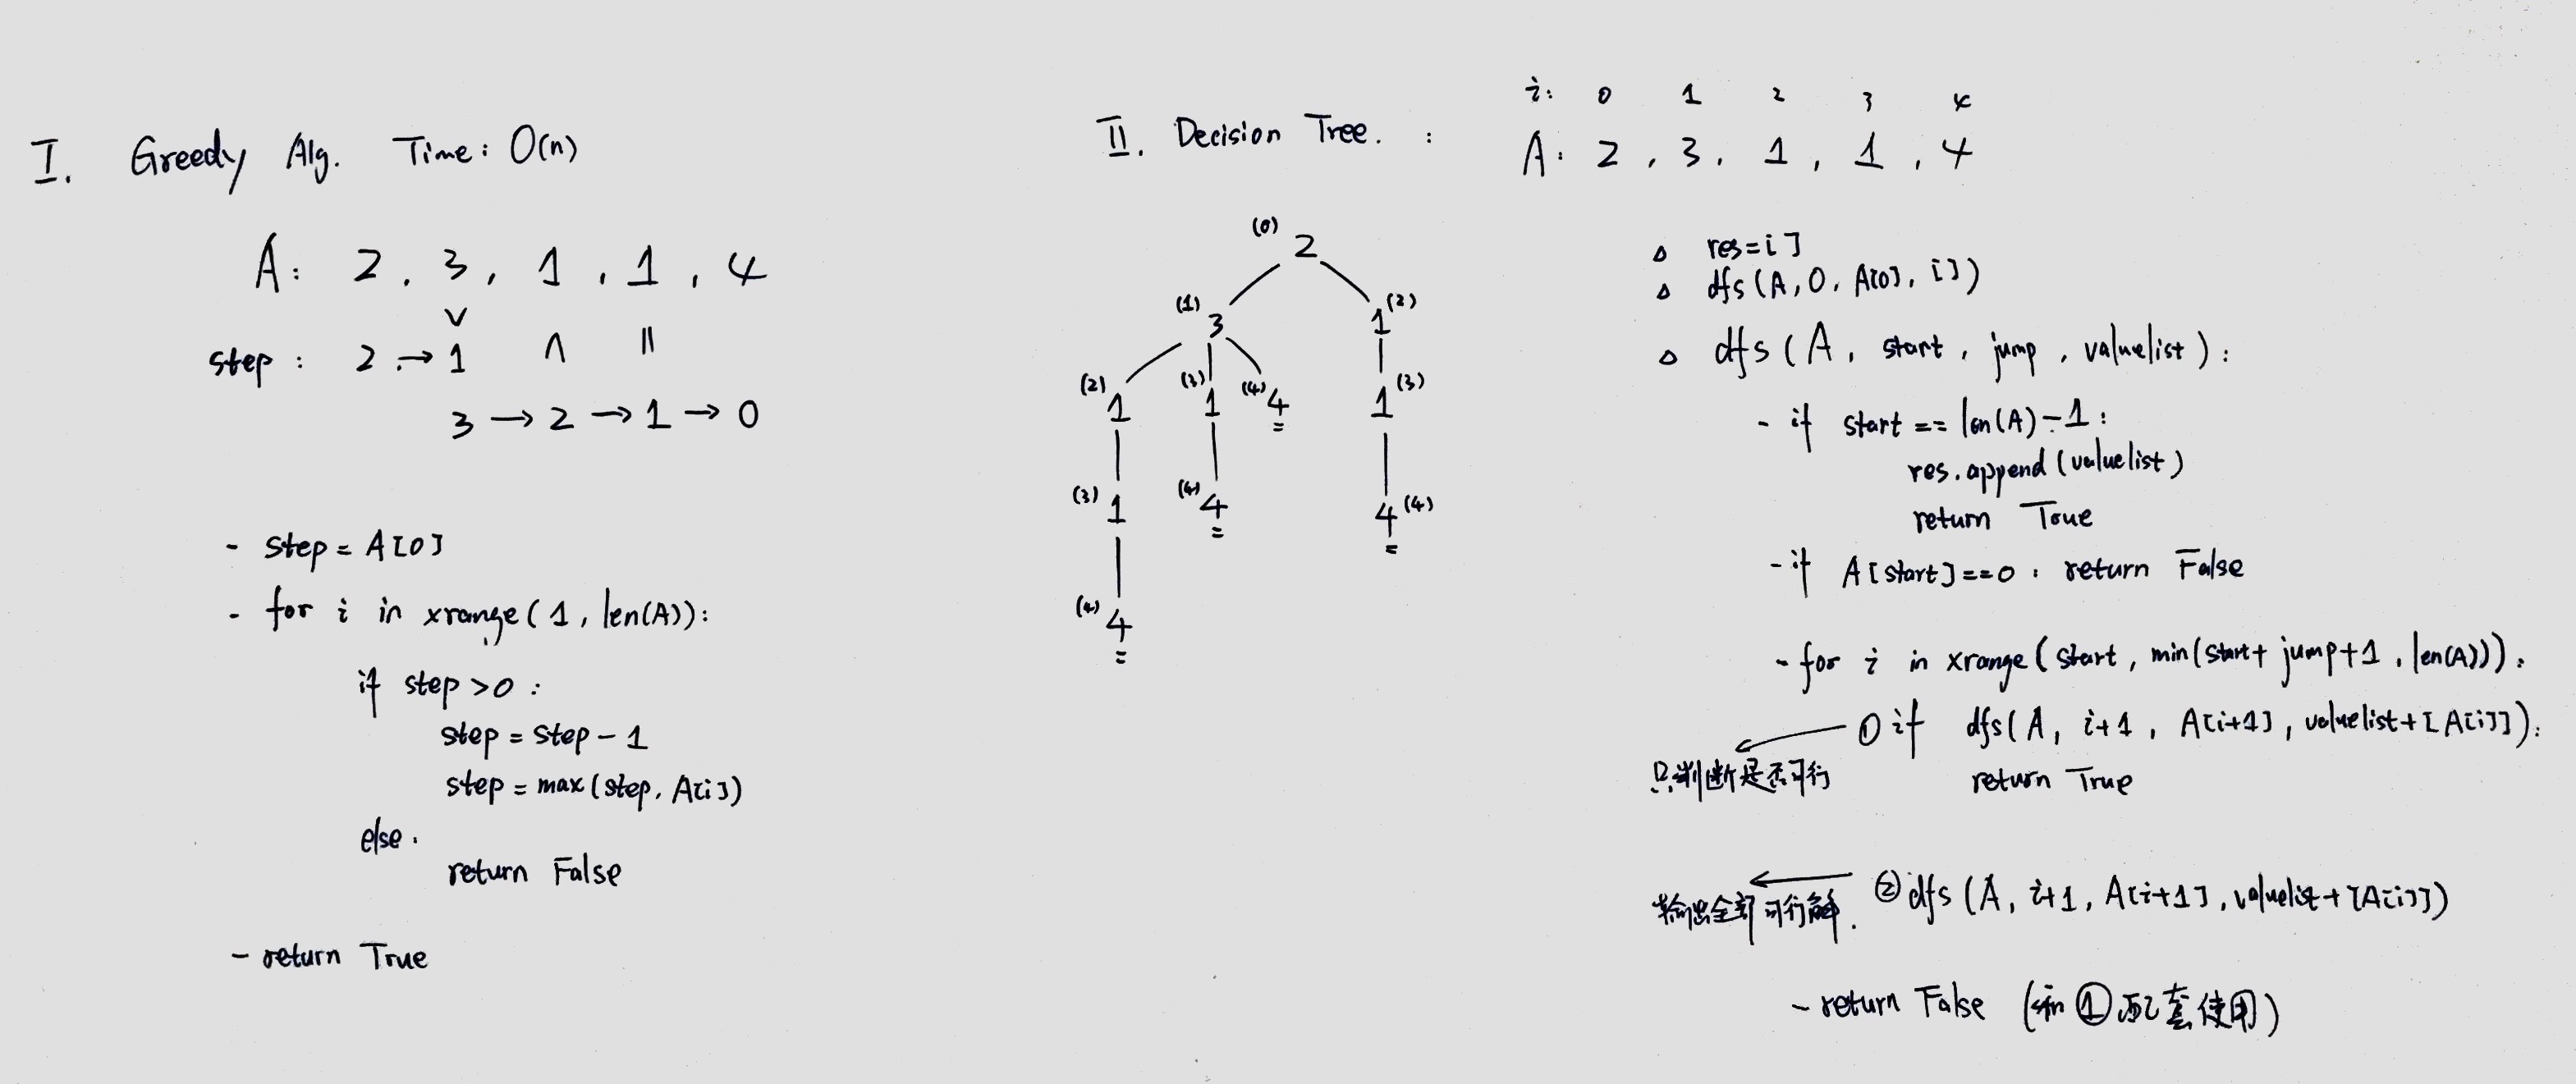 I. Greedy Alg. Time: O(n)
A: 2, 3, 1, 1, 4
∨
step: 2 → 1 ∧ ||
3 → 2 → 1 → 0
- step = A[0]
- for i in xrange(1, len(A)):
if step > 0:
step = step - 1
step = max(step, A[i])
else.
return False
- return True
II. Decision Tree. :
i: 0 1 2 3 4
A: 2, 3, 1, 1, 4
(0) 2
(1) 3 1 (2)
(2) 1 (3) 1 (4) 4 1 (3)
(3) 1 (4) 4 4 (4)
(4) 4
△ res=[]
△ dfs(A, 0, A[0], [])
△ dfs(A, start, jump, valuelist):
- if start == len(A)-1:
res.append(valuelist)
return True
- if A[start]==0: return False
- for i in xrange(start, min(start+jump+1, len(A))):
① if dfs(A, i+1, A[i+1], valuelist+[A[i]]):
只判断是否可行
return True
② dfs(A, i+1, A[i+1], valuelist+[A[i]])
输出全部可行解.
- return False (和①配套使用)